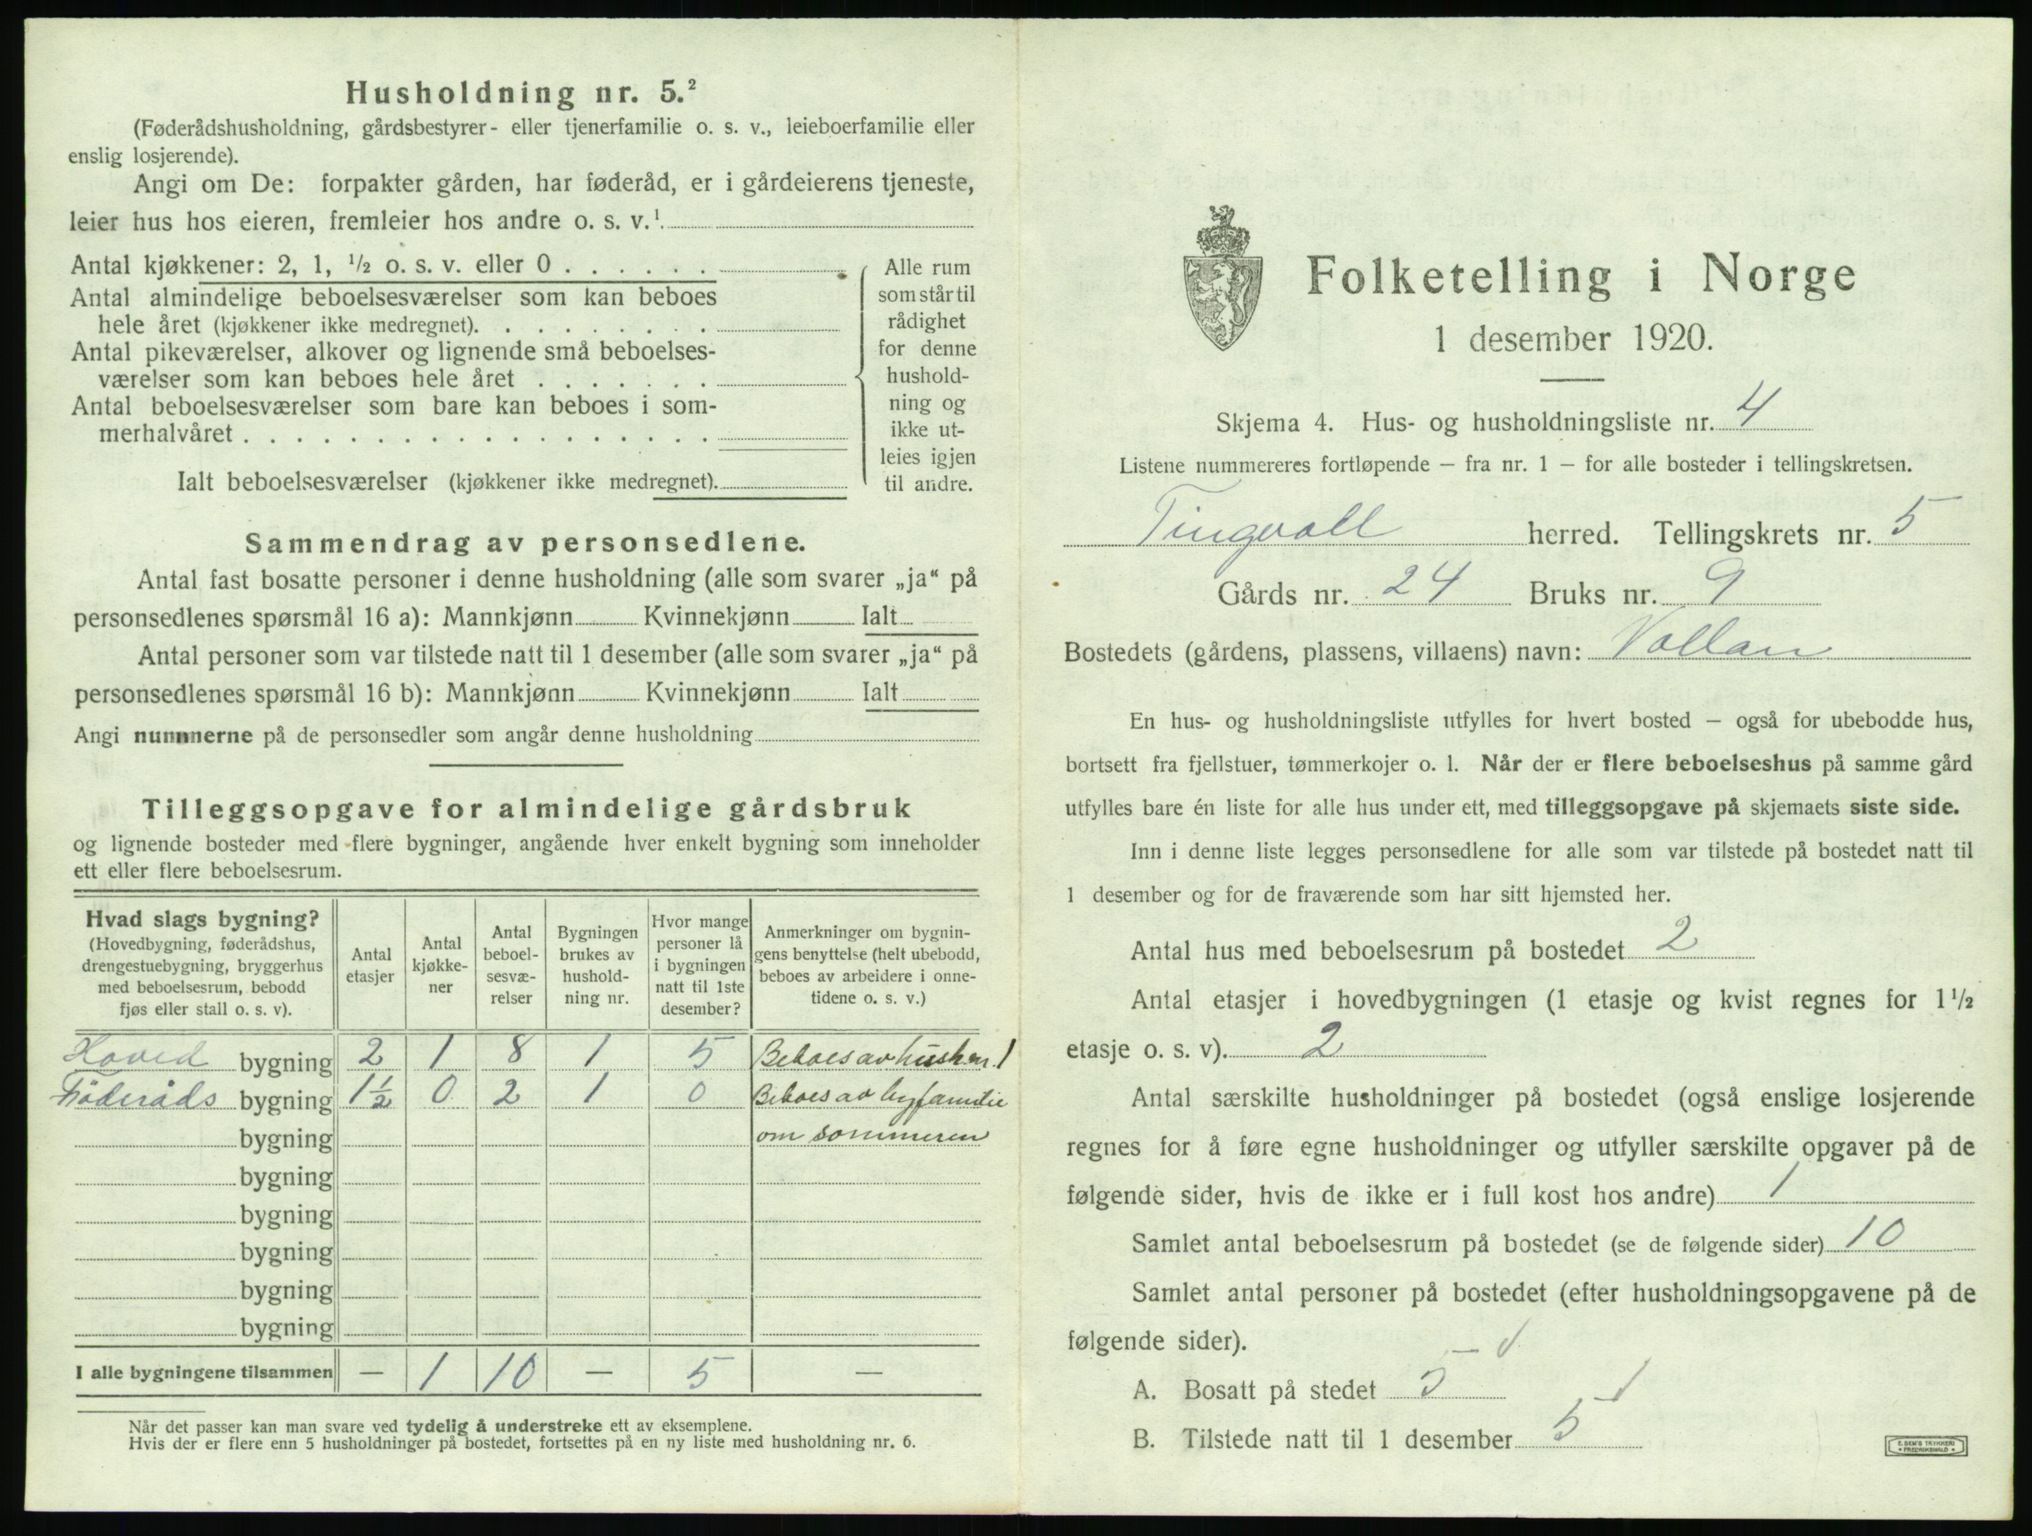 Husholdning nr. 5.²
(Føderådshusholdning, gårdsbestyrer- eller tjenerfamilie o. s. v., leieboerfamilie eller
enslig losjerende).
Angi om De: forpakter gården, har føderåd, er i gårdeierens tjeneste,
leier hus hos eieren, fremleier hos andre o. s. v.¹
Antal kjøkkener: 2, 1, ½ o. s. v. eller 0 . . . . . .
Antal almindelige beboelsesværelser som kan beboes
hele året (kjøkkener ikke medregnet). . . . . . . . .
Antal pikeværelser, alkover og lignende små beboelses-
værelser som kan beboes hele året . . . . . . .
Antal beboelsesværelser som bare kan beboes i som-
merhalvåret . . . . . . . . . . . . . . . . . .
Ialt beboelsesværelser (kjøkkener ikke medregnet).
Alle rum
som står til
rådighet
for denne
hushold-
ning og
ikke ut-
leies igjen
til andre.
Sammendrag av personsedlene.
Antal fast bosatte personer i denne husholdning (alle som svarer „ja“ på
personsedlenes spørsmål 16 a): Mannkjønn Kvinnekjønn Ialt
Antal personer som var tilstede natt til 1 desember (alle som svarer „ja“ på
personsedlenes spørsmål 16 b): Mannkjønn Kvinnekjønn Ialt
Angi nummerne på de personsedler som angår denne husholdning
Tilleggsopgave for almindelige gårdsbruk
og lignende bosteder med flere bygninger, angående hver enkelt bygning som inneholder
ett eller flere beboelsesrum.
Hvad slags bygning?
(Hovedbygning, føderådshus,
drengestuebygning, bryggerhus
med beboelsesrum, bebodd
fjøs eller stall o. s. v).
Antal
etasjer
Antal
kjøkke-
ner
Antal
beboel-
sesvæ-
relser
Bygningen
brukes av
hushold-
ning nr.
Hvor mange
personer lå
i bygningen
natt til 1ste
desember?
Anmerkninger om bygnin-
gens benyttelse (helt ubebodd,
beboes av arbeidere i onne-
tidene o. s. v.)
Hoved bygning 2 1 8 1 5 Beboes av hush nr. 1
Føderåds bygning 1½ 0 2 1 0 Beboes av byfamilie
bygning om sommeren
bygning
bygning
bygning
bygning
bygning
I alle bygningene tilsammen — 1 10 — 5 —
Når det passer kan man svare ved tydelig å understreke ett av eksemplene.
Hvis der er flere enn 5 husholdninger på bostedet, fortsettes på en ny liste med husholdning nr. 6.
Folketelling i Norge
1 desember 1920.
Skjema 4. Hus- og husholdningsliste nr. 4
Listene nummereres fortløpende — fra nr. 1 — for alle bosteder i tellingskretsen.
Tingvoll herred. Tellingskrets nr. 5
Gårds nr. 24 Bruks nr. 9
Bostedets (gårdens, plassens, villaens) navn: Vollan
En hus- og husholdningsliste utfylles for hvert bosted — også for ubebodde hus,
bortsett fra fjellstuer, tømmerkojer o. l. Når der er flere beboelseshus på samme gård
utfylles bare én liste for alle hus under ett, med tilleggsopgave på skjemaets siste side.
Inn i denne liste legges personsedlene for alle som var tilstede på bostedet natt til
1 desember og for de fraværende som har sitt hjemsted her.
Antal hus med beboelsesrum på bostedet 2
Antal etasjer i hovedbygningen (1 etasje og kvist regnes for 1½
etasje o. s. v). 2
Antal særskilte husholdninger på bostedet (også enslige losjerende
regnes for å føre egne husholdninger og utfyller særskilte opgaver på de
følgende sider, hvis de ikke er i full kost hos andre) 1
Samlet antal beboelsesrum på bostedet (se de følgende sider) 10
Samlet antal personer på bostedet (efter husholdningsopgavene på de
følgende sider).
A. Bosatt på stedet 5
B. Tilstede natt til 1 desember 5
E. SEM'S TRYKKERI
FREDRIKSHALD